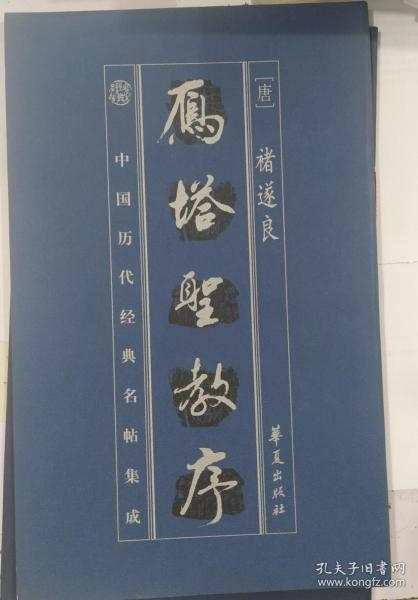 [唐]
褚遂良
雁塔聖教序
中国历代经典名帖集成
華夏出版社
孔夫子旧书网
www.kongfz.com